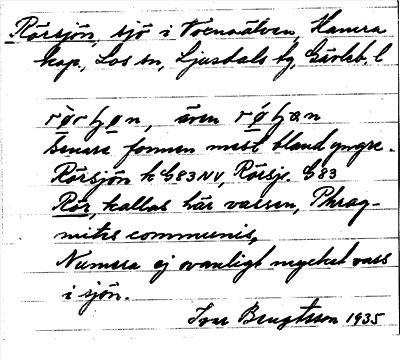 Rörsjön, sjö i Voxnaälven, Hamra
kap., Los sn, Ljusdals tg, Gävleb. l
även
senare formen mest bland yngre.
Rörsjön k G83NV, Rörsjö G83
Rör, kallas här vassen, Phrag-
mites communis,
Numera ej ovanligt mycket vass
i sjön.
Ivar Bengtsson 1935